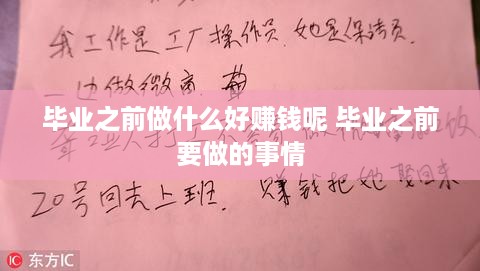 我工作是工厂操作员.她是保洁员.
一边做微商.
毕业之前做什么好赚钱呢 毕业之前
要做的事情
20号回去上班. 赚钱把她娶回来
东方IC